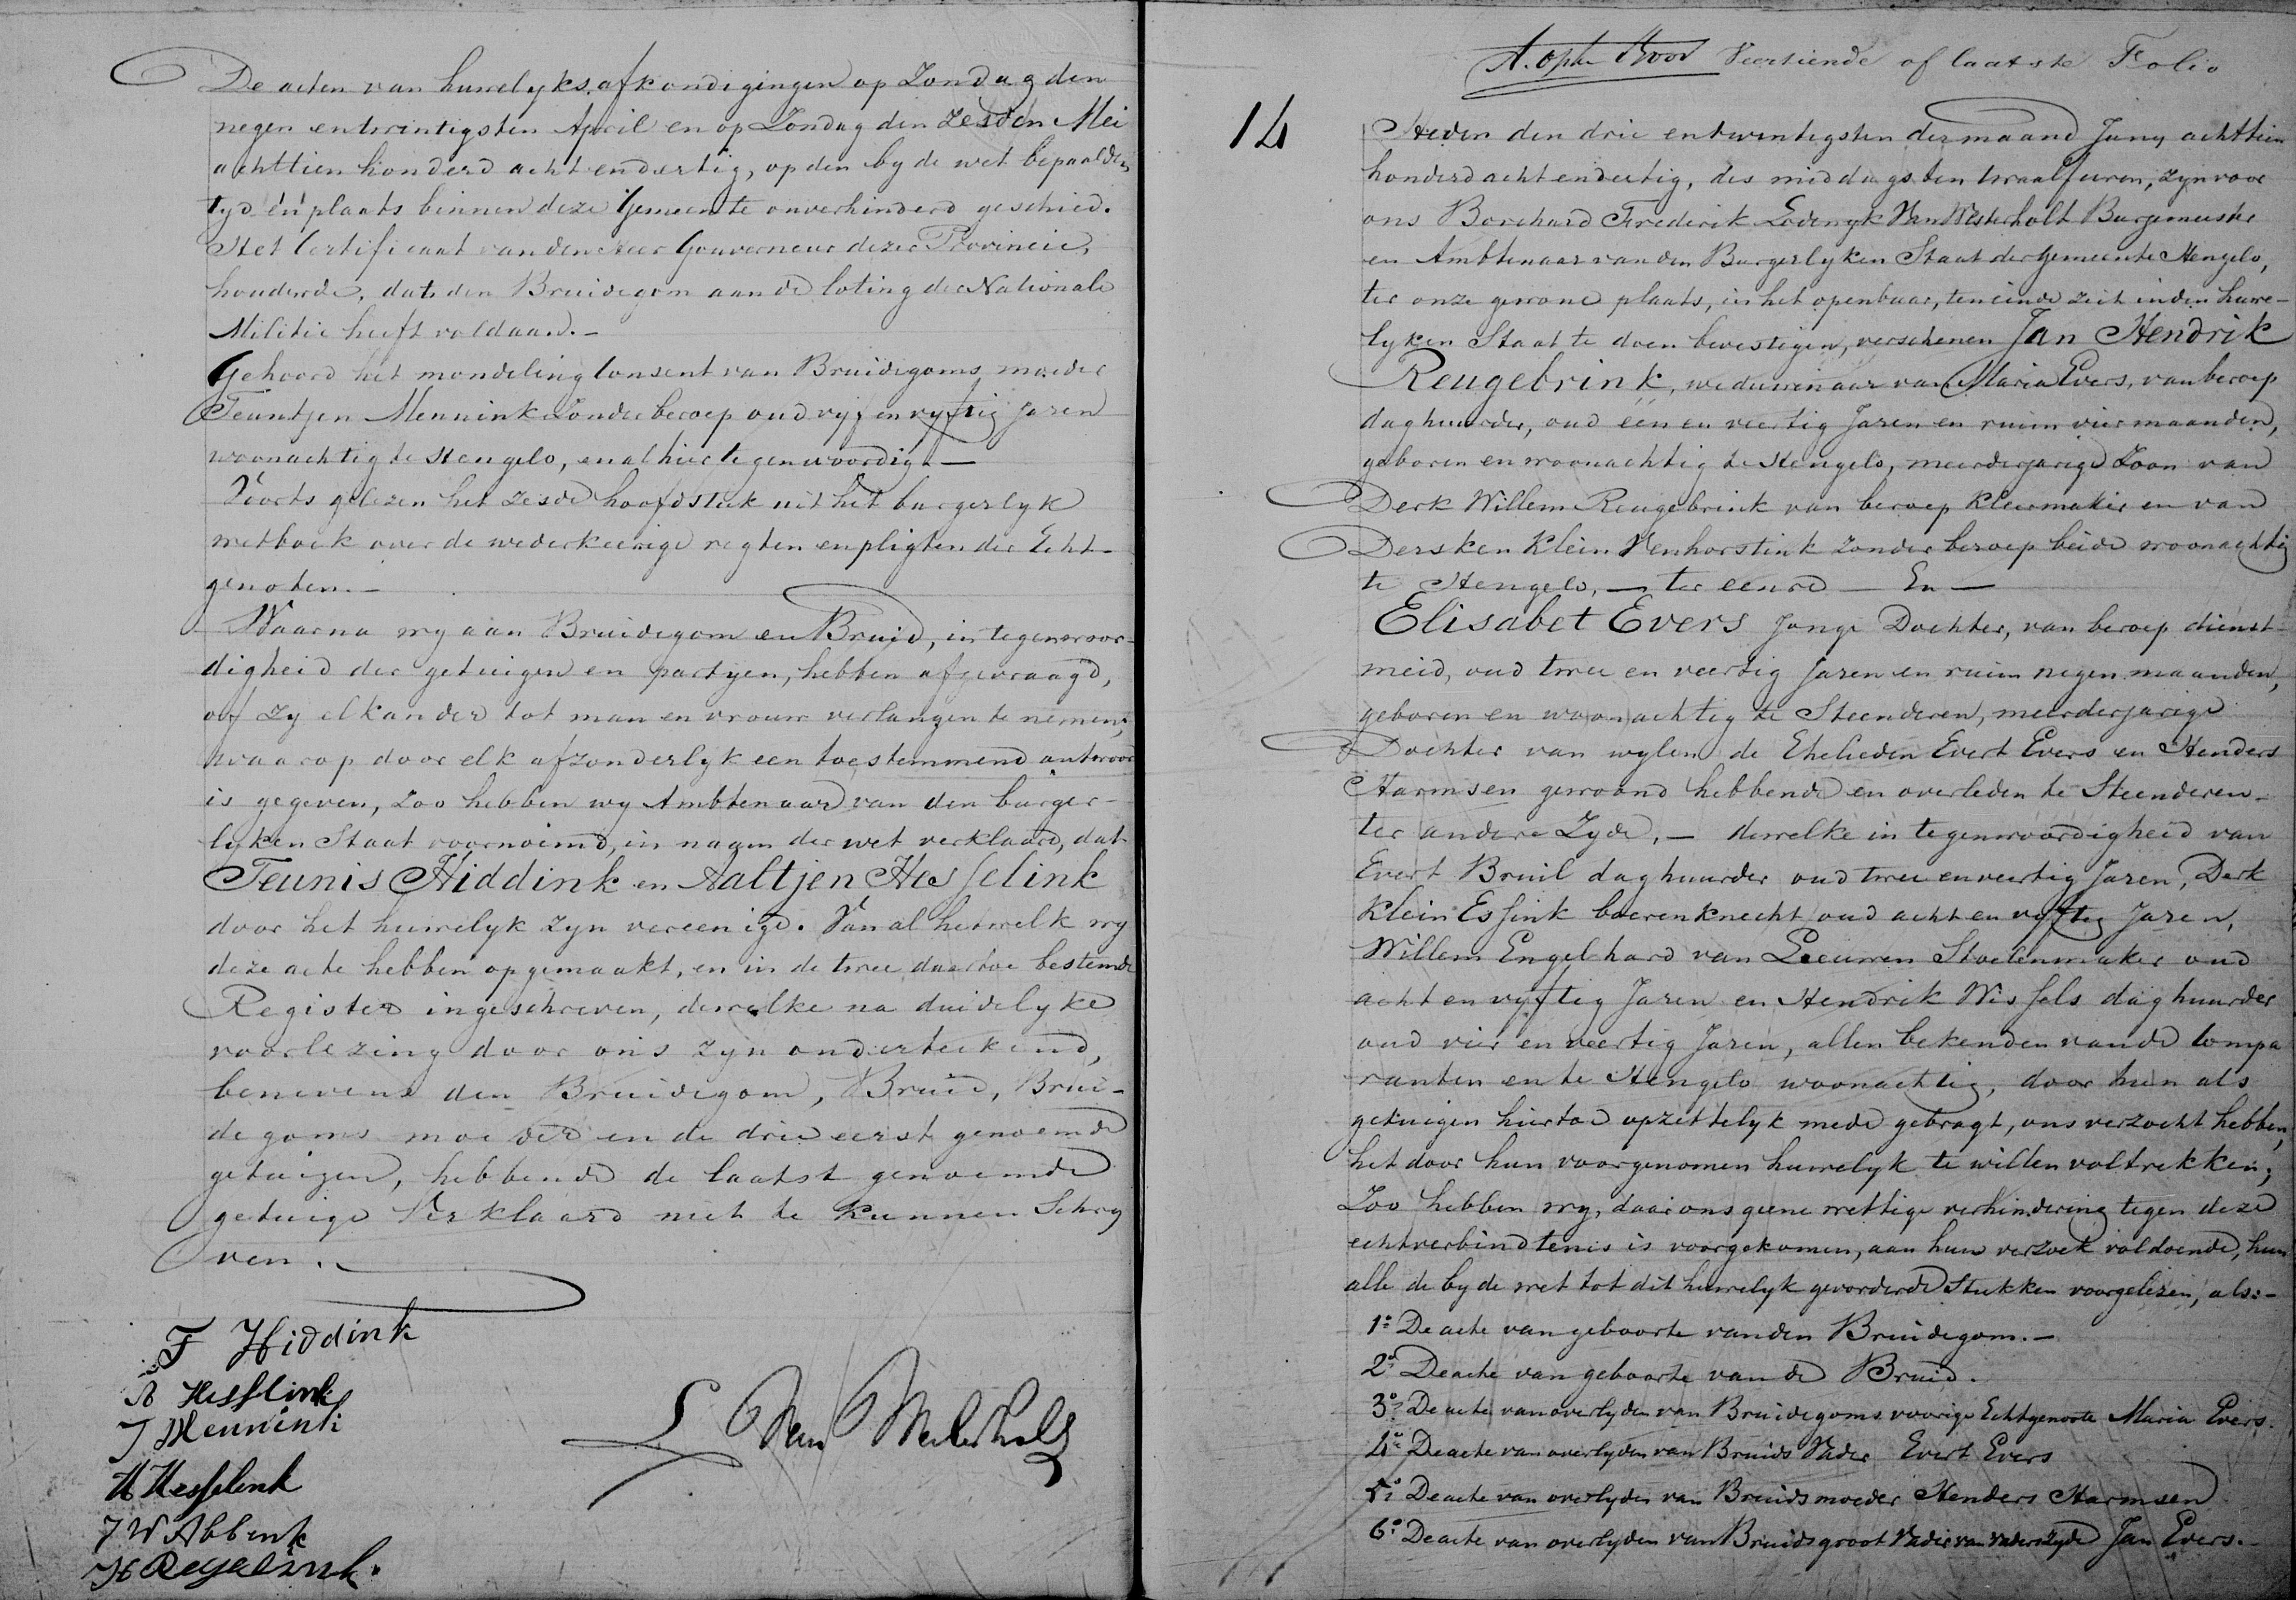 De acten van huwelyks afkondigingen op Zondag den
negen en twintigsten April en op Zondag den Zesden Mei
achttien honderd acht en dertig, op den by de wet bepaalden
tyd en plaats binnen deze Gemeente onverhinderd geschied.
Het Certificaat van den Heer Gouverneur dezer Provincie,
houdende, dat den Bruidegom aan de loting der Nationale
Militie heeft voldaan. —
Gehoord het mondeling consent van Bruidegoms moeder
Teuntjen Mennink Zonder beroep oud vyf en vyftig Jaren
woonachtig te Hengelo, en alhier tegenwoordig. —
Voorts gelezen het zesde hoofdstuk uit het burgerlyk
wetboek over de wederkeerige regten en pligten der Echt-
genoten. —
Waarna wy aan Bruidegom en Bruid, in tegenwoor-
digheid der getuigen en partyen, hebben afgevraagd,
of zy elkander tot man en vrouw verlangen te nemen,
waarop door elk afzonderlyk een toestemmend antwoord
is gegeven, Zoo hebben wy Ambtenaar van den burger-
lyken Staat voornoemd, in naam der wet verklaard, dat
Teunis Hiddink en Aaltjen Hesselink
door het huwelyk zyn vereenigd. Van al hetwelk wy
deze acte hebben opgemaakt, en in de twee daartoe bestemde
Register ingeschreven, dewelke na duidelyke
voorlezing door ons zyn onderteekend,
benevens den Bruidegom, Bruid, Brui-
degoms moeder en de drie eerst genoemde
getuigen, hebbende de laatst genoemde
getuige Verklaard niet te kunnen Schry
ven.
T Hiddink
A Hesslink
T Mennink
H Hesselink
J W Abbink
H Regelink.
L Van Westerholt
A. op ten Noor Veertiende of laatste Folio
14
Heden den drie en twintigsten der maand Juny achttien
honderd acht en dertig, des middags ten twaalf uren, zyn voor
ons Borchard Frederik Lodewyk Van Westerholt Burgemeester
en Ambtenaar van den Burgerlyken Staat der Gemeente Hengelo,
ter onze gewone plaats, in het openbaar, ten einde zich in den huwe-
lyken Staat te doen bevestigen, verschenen Jan Hendrik
Reugebrink, weduwenaar van Maria Evers, van beroep
daghuurder, oud een en veertig Jaren en ruim vier maanden,
geboren en woonachtig te Hengelo, meerderjarige Zoon van
Derk Willem Reugebrink van beroep Kleermaker en van
Dersken Klein Venhorstink zonder beroep beide woonachtig
te Hengelo, — ter eenre — En —
Elisabet Evers Jonge Dochter, van beroep dienst-
meid, oud twee en veertig Jaren en ruim negen maanden,
geboren en woonachtig te Steenderen, meerderjarige
Dochter van wylen de Ehelieden Evert Evers en Henders
Harmsen gewoond hebbende en overleden te Steenderen —
ter andere Zyde, — dewelke in tegenwoordigheid van
Evert Bruil daghuurder oud twee en veertig Jaren, Derk
Klein Essink boerenknecht oud acht en vyftig Jaren,
Willem Engelhard van Leeuwen Stoelenmaker oud
acht en vyftig Jaren en Hendrik Wissels daghuurder
oud vier en veertig Jaren, allen bekenden van de compa
ranten en te Hengelo woonachtig, door hun als
getuigen hiertoe opzettelyk mede gebragt, ons verzocht hebben,
het door hun voorgenomen huwelyk te willen voltrekken;
Zoo hebben wy, daar ons geene wettige verhindering tegen deze
echtverbindtenis is voorgekomen, aan hun verzoek voldoende, hun
alle de by de wet tot dit huwelyk gevorderde Stukken voorgelezen, als: —
1° De acte van geboorte van den Bruidegom. —
2° De acte van geboorte van de Bruid.
3° De acte van overlyden van Bruidegoms voorige Echtgenoote Maria Evers.
4° De acte van overlyden van Bruids Vader Evert Evers
5° De acte van overlyden van Bruids moeder Henders Harmsen
6° De acte van overlyden van Bruids groot Vader van vaderszyde Jan Evers. —